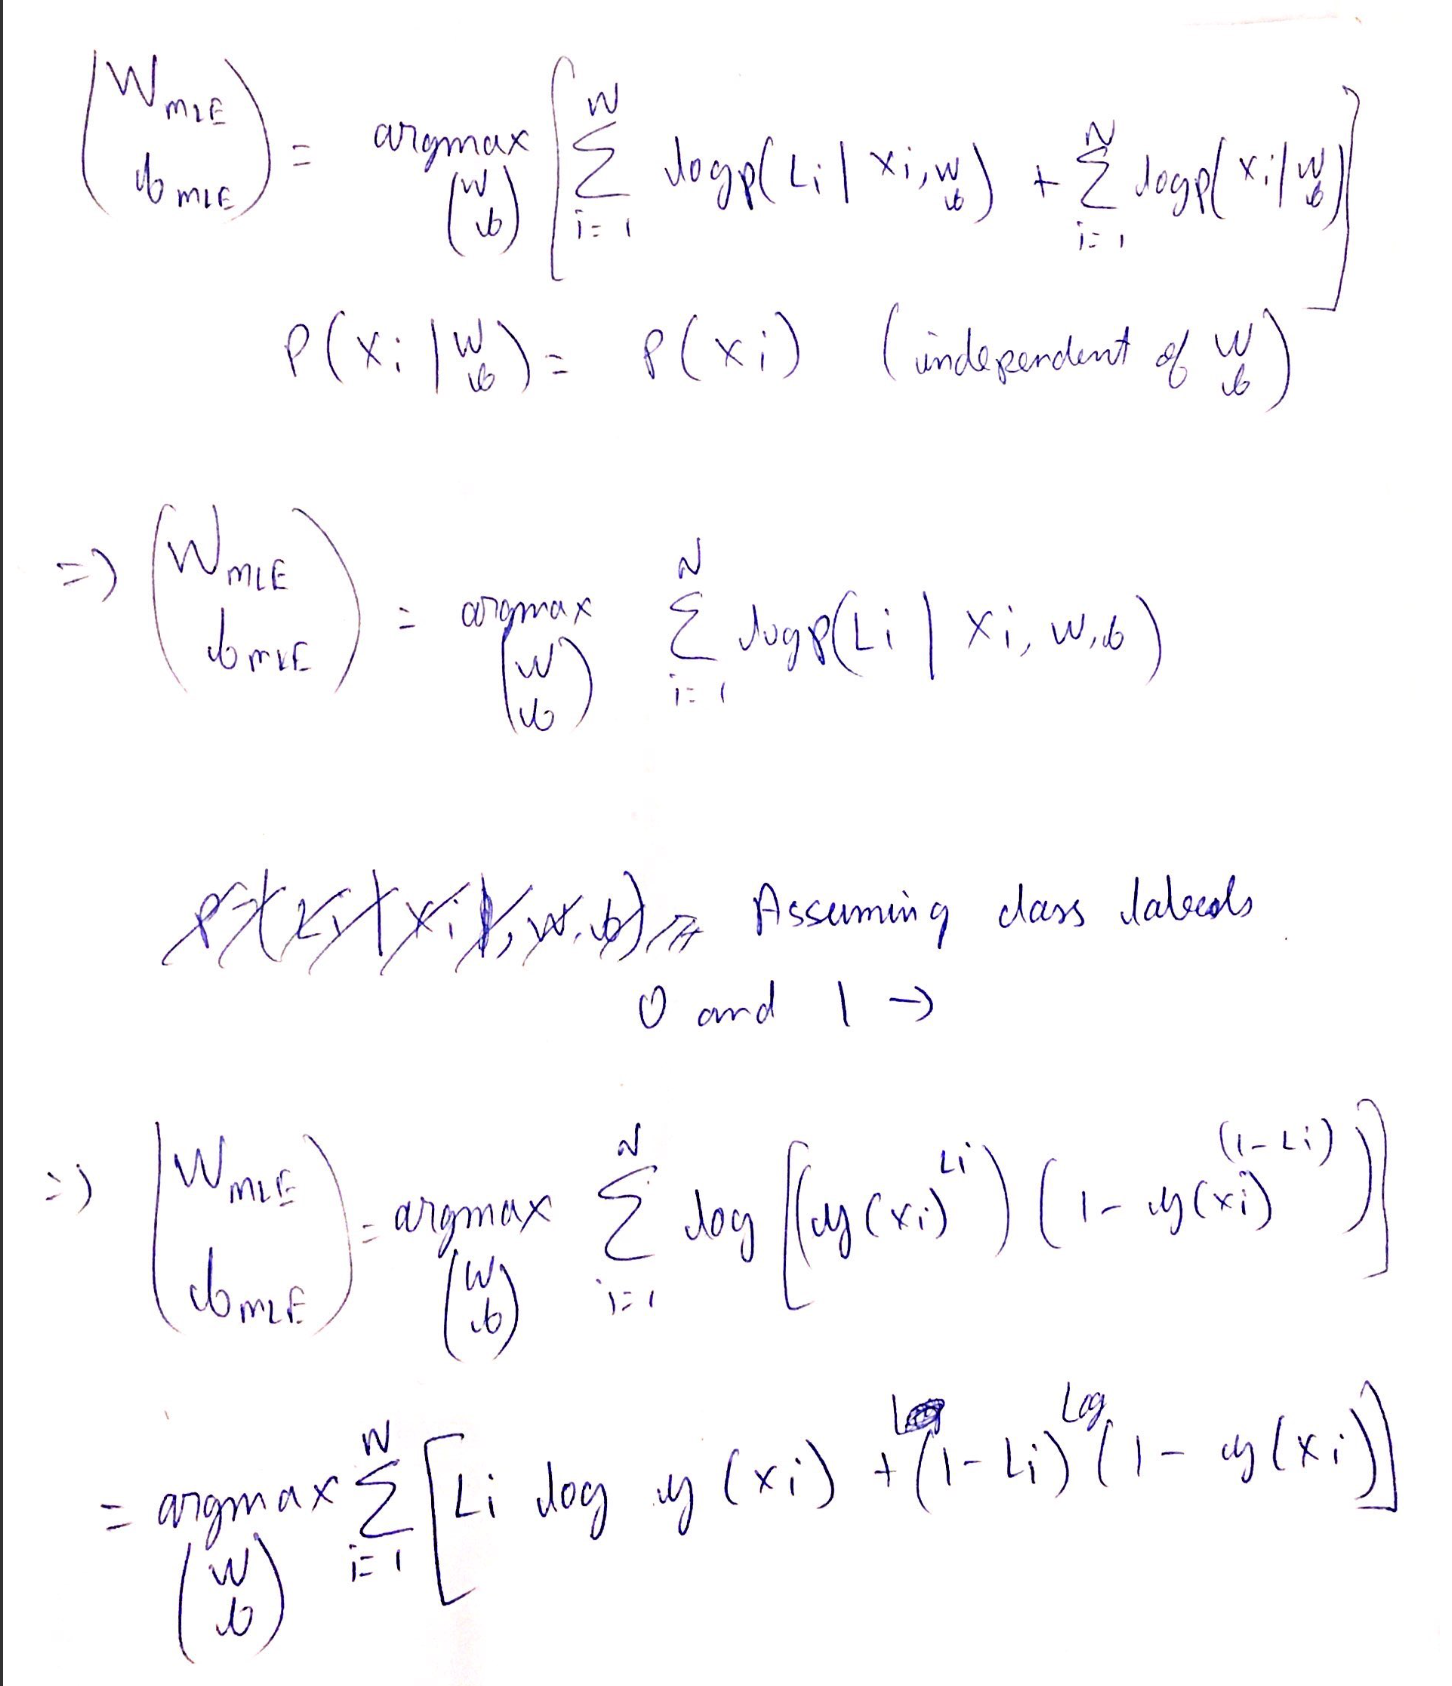 (W_MLE b_MLE) = argmax_(W b) [ Σ_{i=1}^{N} log p(Li | xi, w b) + Σ_{i=1}^{N} log p(xi | w b) ]
P(xi | w b) = P(xi) (independent of w b)
=> (W_MLE b_MLE) = argmax_(W b) Σ_{i=1}^{N} log p(Li | xi, w, b)
Assuming class labels
0 and 1 →
=> (W_MLE b_MLE) = argmax_(W b) Σ_{i=1}^{N} log [ (y(xi)^{Li}) (1 - y(xi)^{(1-Li)}) ]
= argmax_(W b) Σ_{i=1}^{N} [ Li log y(xi) + (1-Li) Log (1 - y(xi)) ]